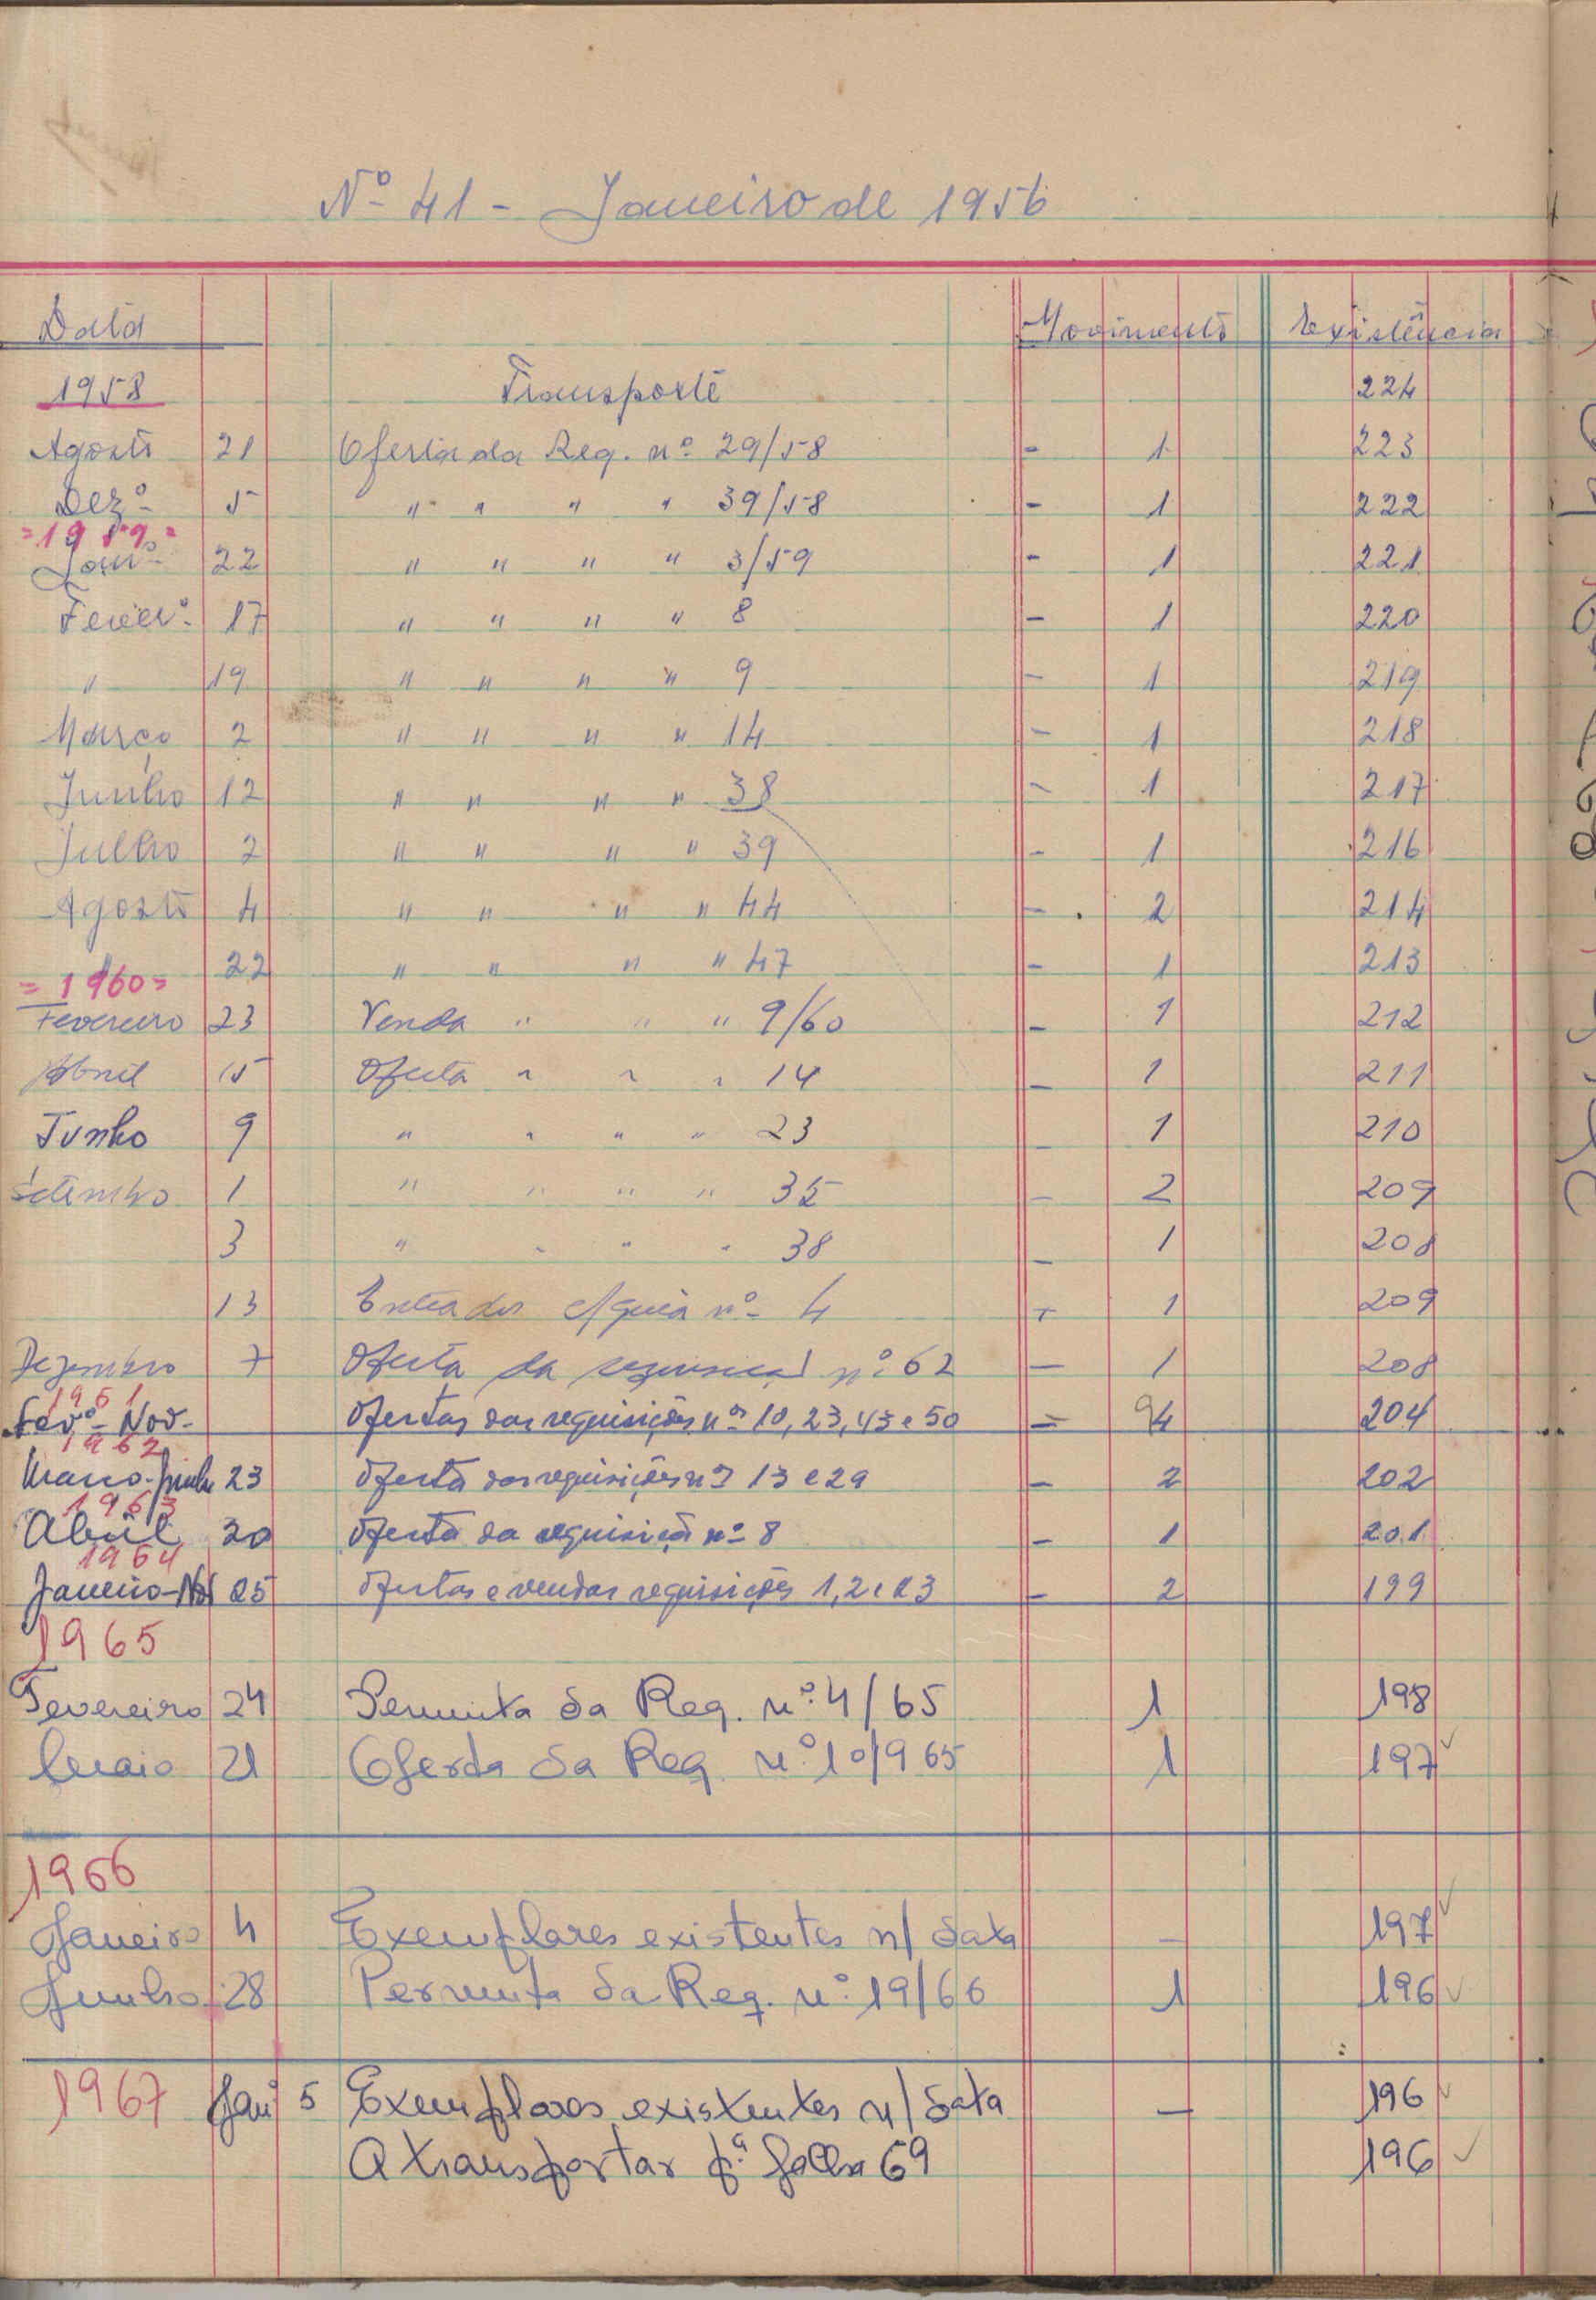 Nº 41 - Janeiro de 1956
Data Movimento Existência
1958 Transporte 224
Agosto 21 Oferta da Req. nº 29/58 - 1 223
Dezº 5 " " " " 39/58 - 1 222
=1959=
Janº 22 " " " " 3/59 - 1 221
Feverº 17 " " " " 8 - 1 220
" 19 " " " " 9 - 1 219
Março 2 " " " " 14 - 1 218
Junho 12 " " " " 38 - 1 217
Julho 2 " " " " 39 - 1 216
Agosto 4 " " " " 44 - 2 214
22 " " " " 47 - 1 213
=1960=
Fevereiro 23 Venda " " " 9/60 - 1 212
Abril 15 Oferta " " " 14 - 1 211
Junho 9 " " " " 23 - 1 210
Setembro 1 " " " " 35 - 2 209
3 " " " " 38 - 1 208
13 Entrados c/guia nº 4 + 1 209
Dezembro 7 Oferta da nº 62 - 1 208
1961
Fevº - Nov. Ofertas das requisições nºs 10, 23, 43 e 50 - 4 204
1962
Março-Junho 23 Oferta das requisições nºs 13 e 29 - 2 202
1963
Abril 30 Oferta da requisição nº 8 - 1 201
1964
Janeiro-Nov 25 Ofertas e vendas requisições 1, 2 e 23 - 2 199
1965
Fevereiro 24 Permuta da Req. nº 4/65 1 198
Maio 21 Oferta da Req. nº 10/965 1 197 ✓
1966
Janeiro 4 Exemplares existentes n/ data - 197 ✓
Junho 28 Permuta da Req. nº 19/66 1 196 ✓
1967 Janº 5 Exemplares existentes n/ data - 196 ✓
A transportar pª folha 69 196 ✓